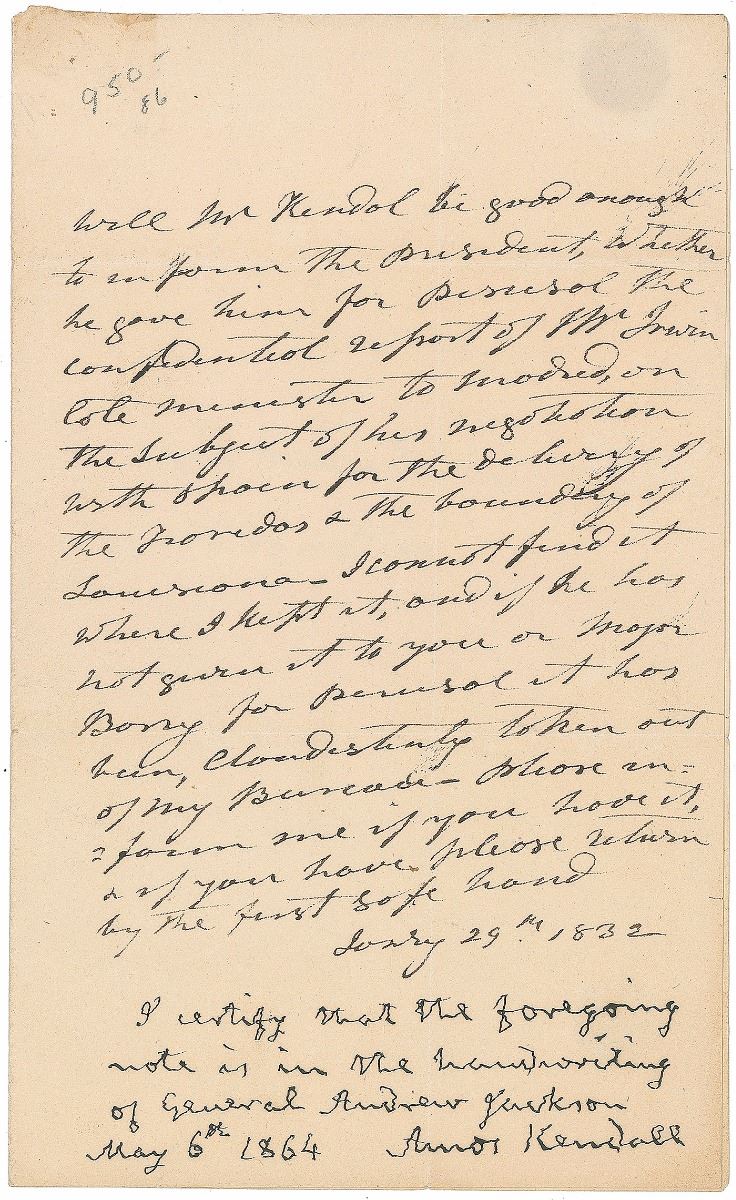 950-
86
Will Mr Kendol be good enough
to inform the President, Whether
he gave him for perusol the
confidential report of Mr Irwin
late minister to Modred, on
the Subject of his negotiation
with Spain for the delivery of
the Floridas & the boundry of
Louisiona - I connot find it
where I kept it, and if he has
not given it to you or Major
Barry for perusol it has
been, Clandestinly token out
of my Bureau - please in=
=form me if you have it,
& if you have please return
by the first safe hand
Janry 29th 1832
I certify that the foregoing
note is in the handwriting
of General Andrew Jackson
May 6th 1864 Amos Kendall